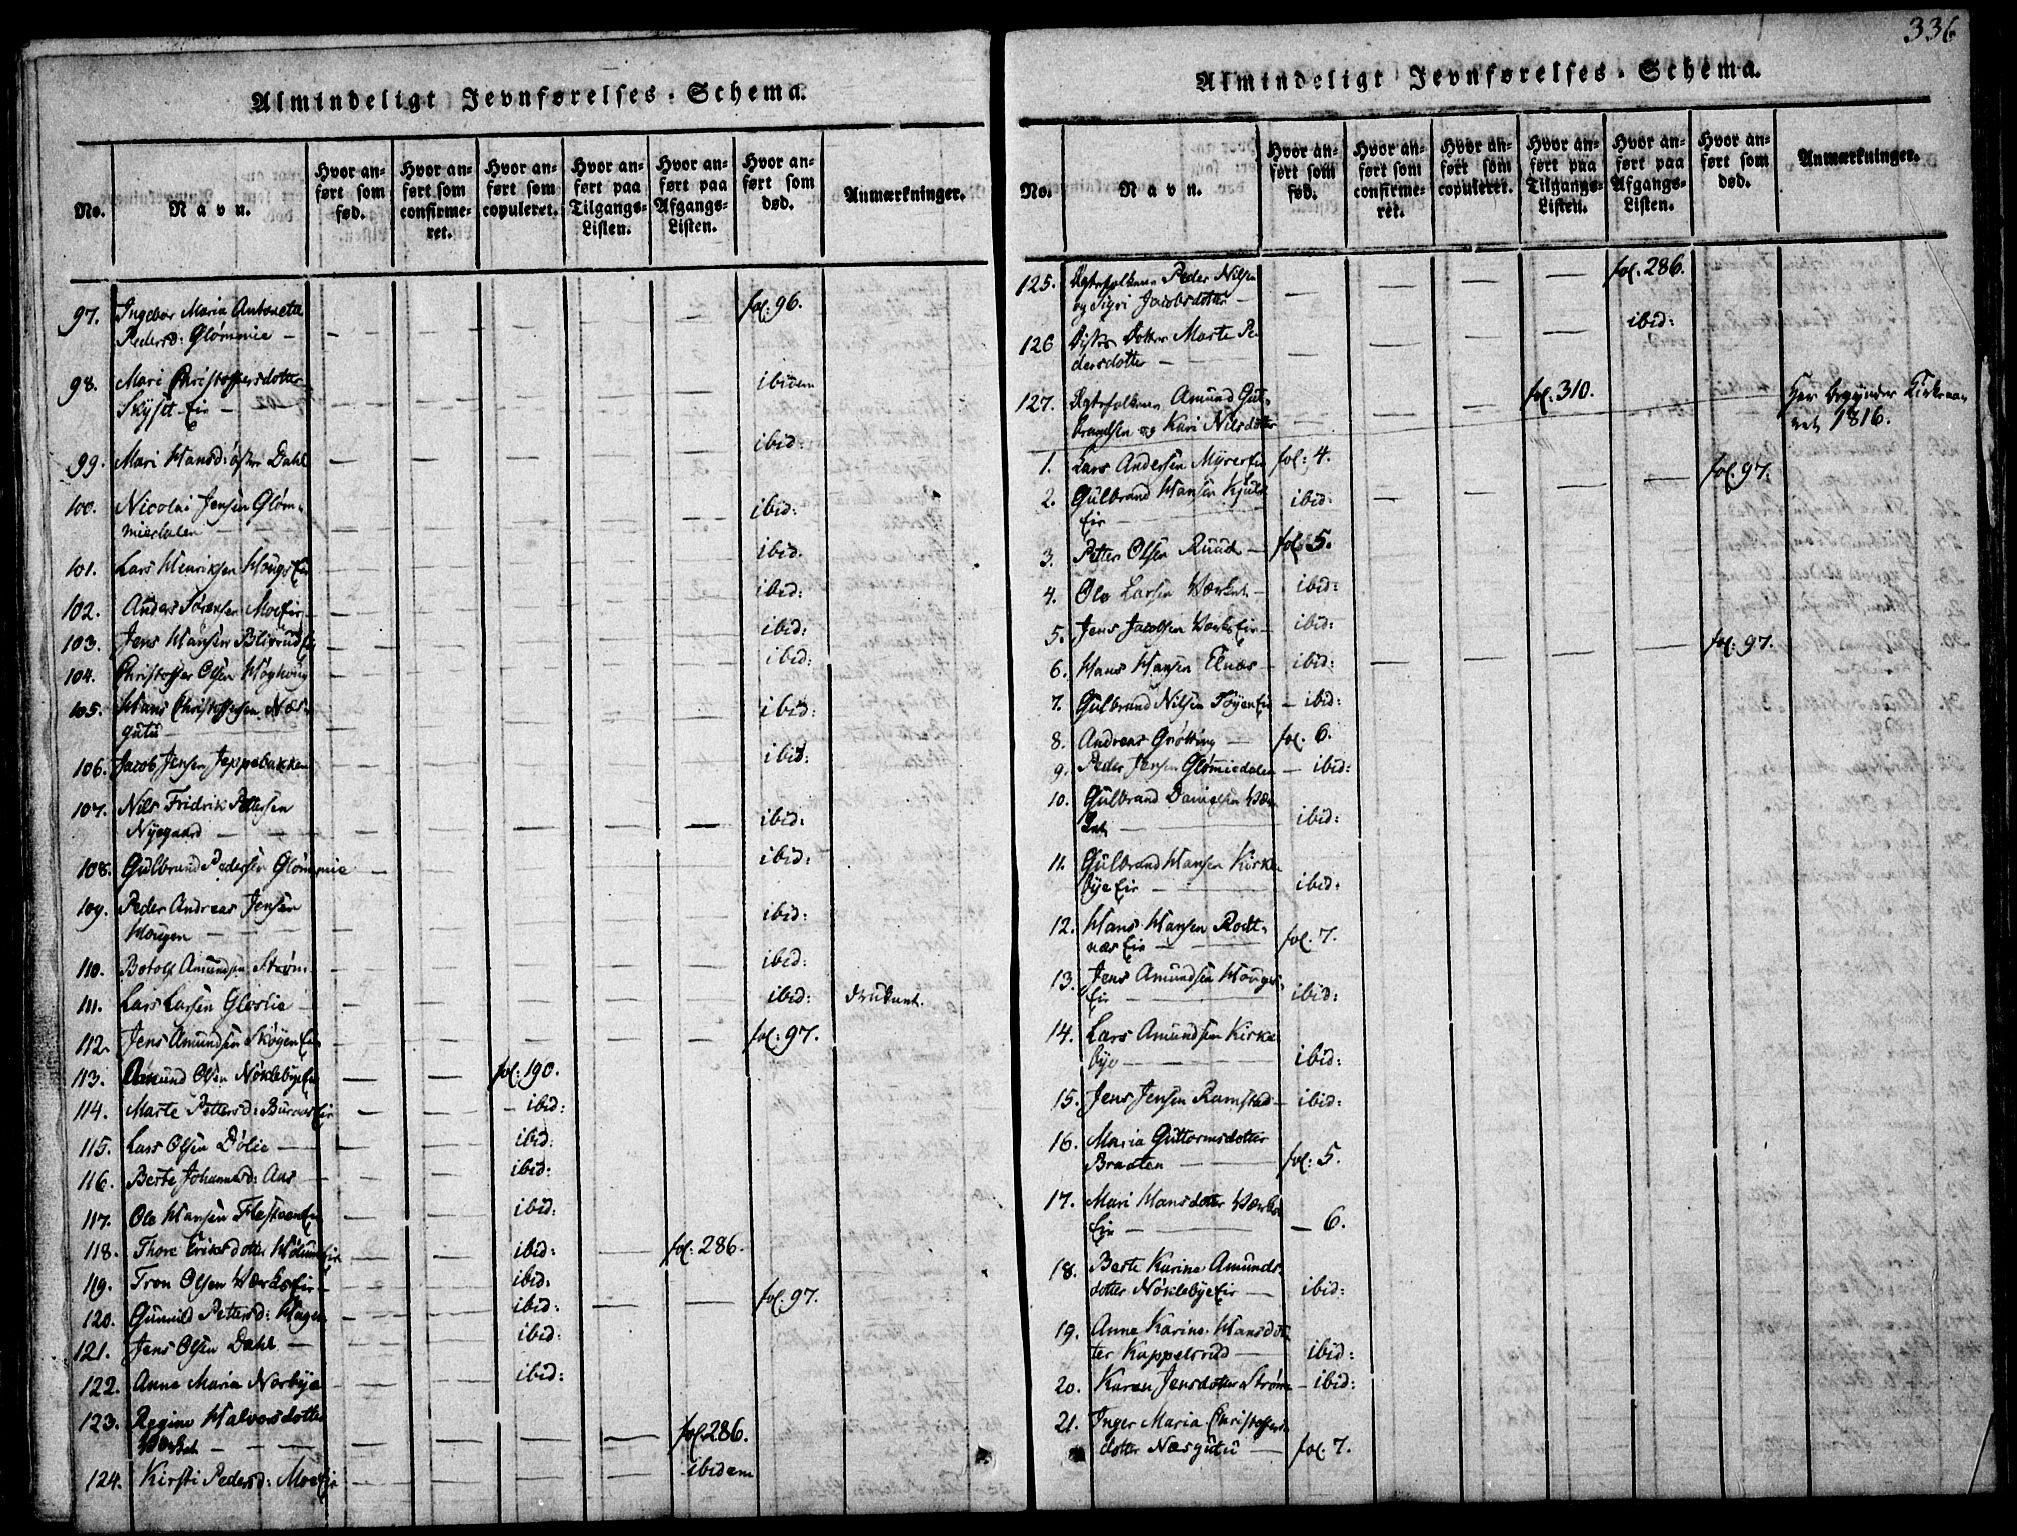 336
Almindeligt Jevnførelses-Schema.
No.
Navn.
Hvor anført som fød.
Hvor anført som confirmeret.
Hvor anført som copuleret.
Hvor anført paa Tilgangs-Listen.
Hvor anført paa Afgangs-Listen.
Hvor anført som død.
Anmærkninger.
97. Ingebor Maria Antonette fol. 96.
Pedersd: Glømmie —
98. Mari Christoffersdotter ibidem
Skyset Eie —
99. Mari Hansd: østre Dahl ibid:
100. Nicolai Jensen Gløm-
miedalen — ibid:
101. Lars Henriksen Hougs Eie ibid.
102. Anders Sørensen Moe Eie ibid:
103. Jens Hansen Bligrud Eie ibid:
104. Christoffer Olsen ibid:
105. Hans Christoffersen Næs-
gutu — ibid:
106. Jacob Jensen Jeppebakken ibid:
107. Nils Fridrik Pettersen
Nyegaard — ibid:
108. Gulbrand Pedersen Glømmie — ibid:
109. Peder Andreas Jensen
Hougen — ibid:
110. Botolf Amundsen Strøm ibid:
111. Lars Larsen Gloslie ibid: druknet.
112. Jens Amundsen Skøyen Eie fol: 97.
113. Amund Olsen Nøklebye Eie fol: 190.
114. Marte Pettersd: Buraas Eie — ibid:
115. Lars Olsen Dølie — ibid:
116. Berte Johannesd: Aas ibid:
117. Ole Hansen Flestveen Eie ibid:
118. Thore Eriksdotter Eie ibid: fol: 286.
119. Tron Olsen Værks Eie ibid.
120. Gunnild Pettersd: Hagen ibid: fol. 97.
121. Jens Olsen Dæhl — ibid:
122. Anne Maria Norbye ibid:
123. Regine Halvorsdotter
Værket — fol. 286.
124. Kirsti Pedersd: Moe Eie ibidem
Almindeligt Jevnførelses-Schema.
No.
Navn.
Hvor anført som fød.
Hvor anført som confirmeret.
Hvor anført som copuleret.
Hvor anført paa Tilgangs-Listen.
Hvor anført paa Afgangs-Listen.
Hvor anført som død.
Anmærkninger.
125. Ægtefolkene Peder Nilsen fol. 286.
og Sigri Jacobsdotter —
126 Disses Dotter Marte Pe- ibid:
dersdotter —
127. Ægtefolkene Amund Gul- fol. 310. Her begynder Kirkeaa-
brandsen og Kari Nilsdotter ret 1816.
1. Lars Andersen Myrer Eie fol: 4.
2. Gulbrand Hansen
Eie — ibid: fol. 97.
3. Petter Olsen Ruud — fol. 5.
4. Ole Larsen Værket — ibid:
5. Jens Jacobsen Værks Eie — ibid:
6. Hans Hansen Elnæs — ibid: fol: 97.
7. Gulbrand Nilsen Tøyen Eie — ibid:
8. Andreas Grøtting — fol. 6.
9. Peder Jensen Glømmiedalen — ibid:
10. Gulbrand Danielsen Vær-
ket — ibid:
11. Gulbrand Hansen Kirke-
bye Eie — ibid:
12. Hans Hansen Rodt-
næs Eie — fol. 7.
13. Jens Amundsen Hougs-
Eie — ibid:
14. Lars Amundsen Kirke
bye — ibid:
15. Jens Jensen Ramstad — ibid:
16. Maria Guttormsdotter
Braaten — fol: 5.
17. Mari Hansdotter Værks-
Eie — 6.
18. Berte Karine Amunds-
dotter Nøklebye Eie — ibid:
19. Anne Karine Hansdot-
ter Kappelsrud — ibid:
20. Karen Jensdotter Strøm — ibid:
21. Inger Maria Christoffers-
dotter Næsgutu — fol. 7.